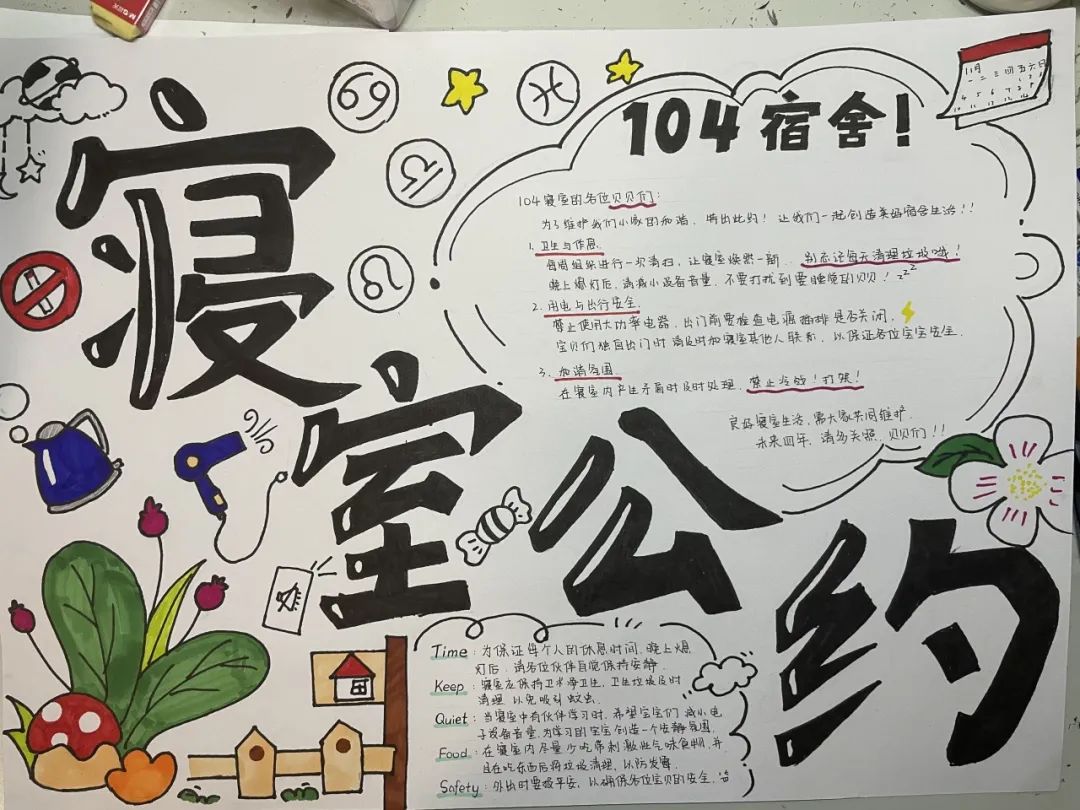 寝室公约
104宿舍!
104寝室的各位贝贝们:
为了维护我们小家的和谐,特出此约!让我们一起创造美好宿舍生活!!
1. 卫生与作息.
每周组织进行一次清扫,让寝室焕然一新.别忘记每天清理垃圾哦!
晚上熄灯后,请减小设备音量,不要打扰到要睡觉的贝贝!zzz
2. 用电与出行安全.
禁止使用大功率电器,出门前要检查电源插排是否关闭.
宝贝们独自出门时请及时和寝室其他人联系,以保证各位宝宝安全.
3. 和谐氛围.
在寝室内产生矛盾时及时处理.禁止冷战!打架!
良好寝室生活,需大家共同维护.
未来四年,请多关照,贝贝们!!
11月
一 二 三 四 五 六 日
Time:为保证每个人的休息时间,晚上熄
灯后,请各位伙伴自觉保持安静.
Keep:寝室应保持卫生,卫生垃圾及时
清理,以免吸引蚊虫.
Quiet:当寝室中有伙伴学习时,希望宝宝们减小电
子设备音量,为学习的宝宝创造一个安静氛围.
Food:在寝室内尽量少吃带刺激性气味食物,并
且在吃东西后将垃圾清理,以防发霉.
Safety:外出时要报平安,以确保各位宝贝的安全.